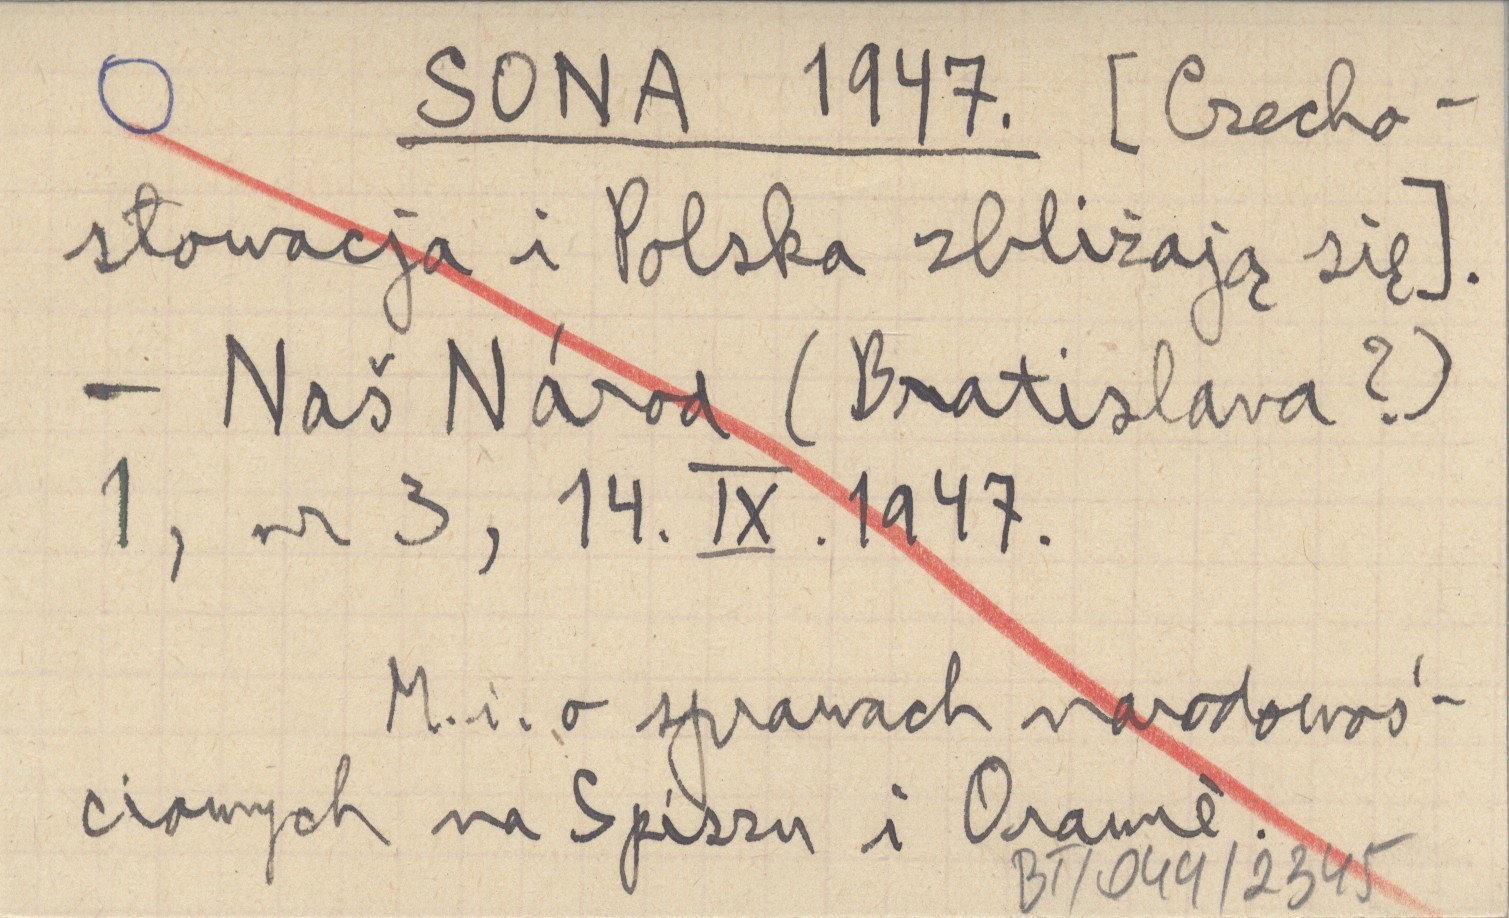 SONA 1947. [Czecho-
słowacja i Polska zbliżają się].
- Naš Národ (Bratislava?)
1, nr 3, 14. IX. 1947.
M. i. o sprawach narodowoś-
ciowych na Spiszu i Orawie.
BT/044/2345